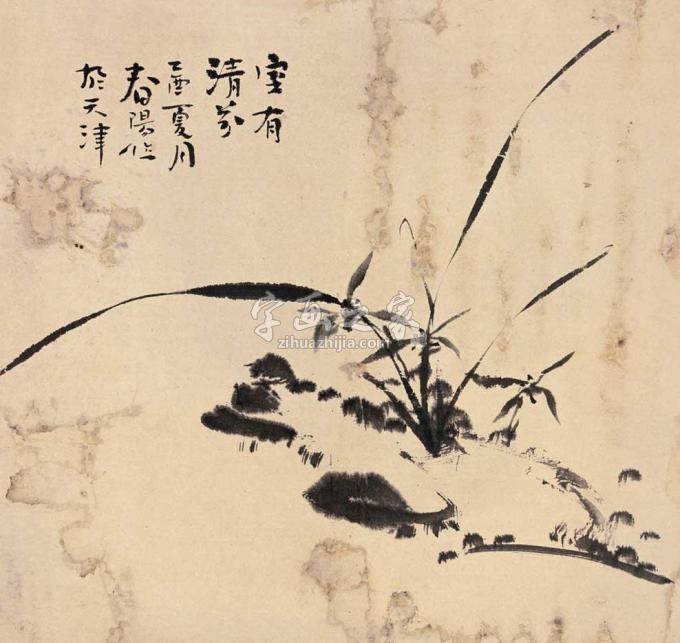 室有
清芬
乙酉夏月
春陽作
於天津
字画之家
zihuazhijia.com